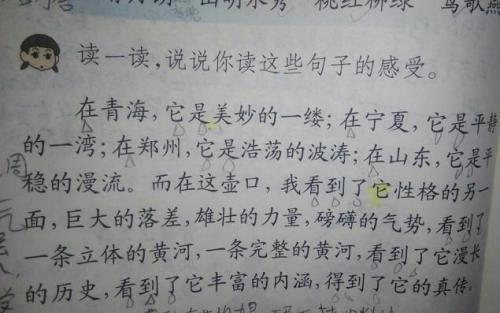 山明水秀 桃红柳绿 莺歌燕
读一读，说说你读这些句子的感受。
在青海，它是美妙的一缕；在宁夏，它是平静
的一湾；在郑州，它是浩荡的波涛；在山东，它是平
稳的漫流。而在这壶口，我看到了它性格的另一
面，巨大的落差，雄壮的力量，磅礴的气势，看到了
一条立体的黄河，一条完整的黄河，看到了它漫长
的历史，看到了它丰富的内涵，得到了它的真传。